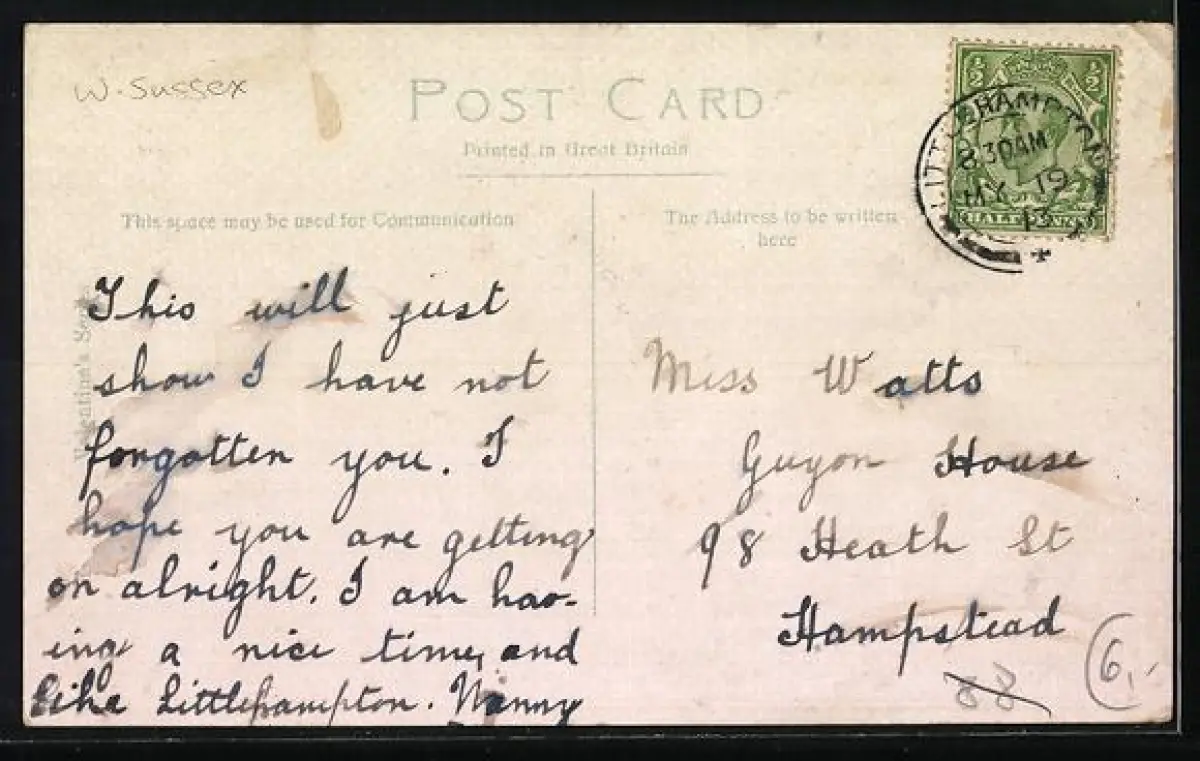 W. Sussex
POST CARD
Printed in Great Britain
This space may be used for Communication
The Address to be written
here
LITTLEHAMPTON
8.30AM
MY 19
13
HALF
This will just
show I have not
forgotten you. I
hope you are getting
on alright. I am hav-
ing a nice time, and
like Littlehampton. Nanny
Miss Watts
Guyon House
98 Heath St
Hampstead
88
6,-
Valentine's Series